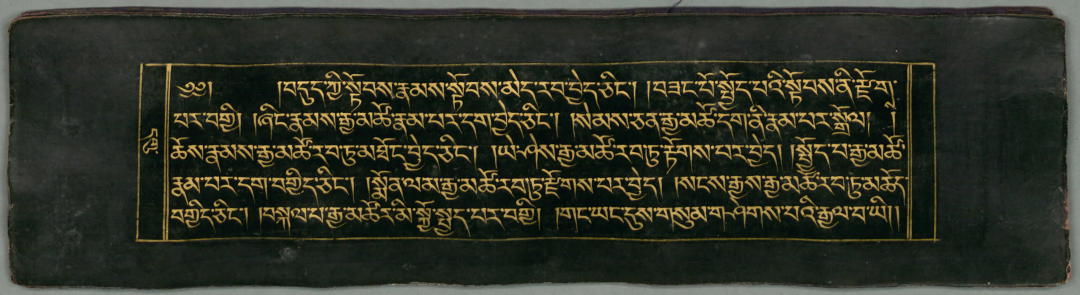 ༄༅། །བདུད་ཀྱི་སྟོབས་རྣམས་སྟོབས་མེད་རབ་བྱེད་ཅིང་། །བཟང་པོ་སྤྱོད་པའི་སྟོབས་ནི་རྫོགས་
པར་བགྱི། །ཞིང་རྣམས་རྒྱ་མཚོ་རྣམ་པར་དག་བྱེད་ཅིང་། །སེམས་ཅན་རྒྱ་མཚོ་དག་ནི་རྣམ་པར་སྒྲོལ། །
ཆོས་རྣམས་རྒྱ་མཚོ་རབ་ཏུ་མཐོང་བྱེད་ཅིང་། །ཡེ་ཤེས་རྒྱ་མཚོ་རབ་ཏུ་རྟོགས་པར་བྱེད། །སྤྱོད་པ་རྒྱ་མཚོ་
རྣམ་པར་དག་བགྱིད་ཅིང་། །སྨོན་ལམ་རྒྱ་མཚོ་རབ་ཏུ་རྫོགས་པར་བྱེད། །སངས་རྒྱས་རྒྱ་མཚོ་རབ་ཏུ་མཆོད་
བགྱིད་ཅིང་། །བསྐལ་པ་རྒྱ་མཚོར་མི་སྐྱོ་སྤྱད་པར་བགྱི། །གང་ཡང་དུས་གསུམ་གཤེགས་པའི་རྒྱལ་བ་ཡི།།